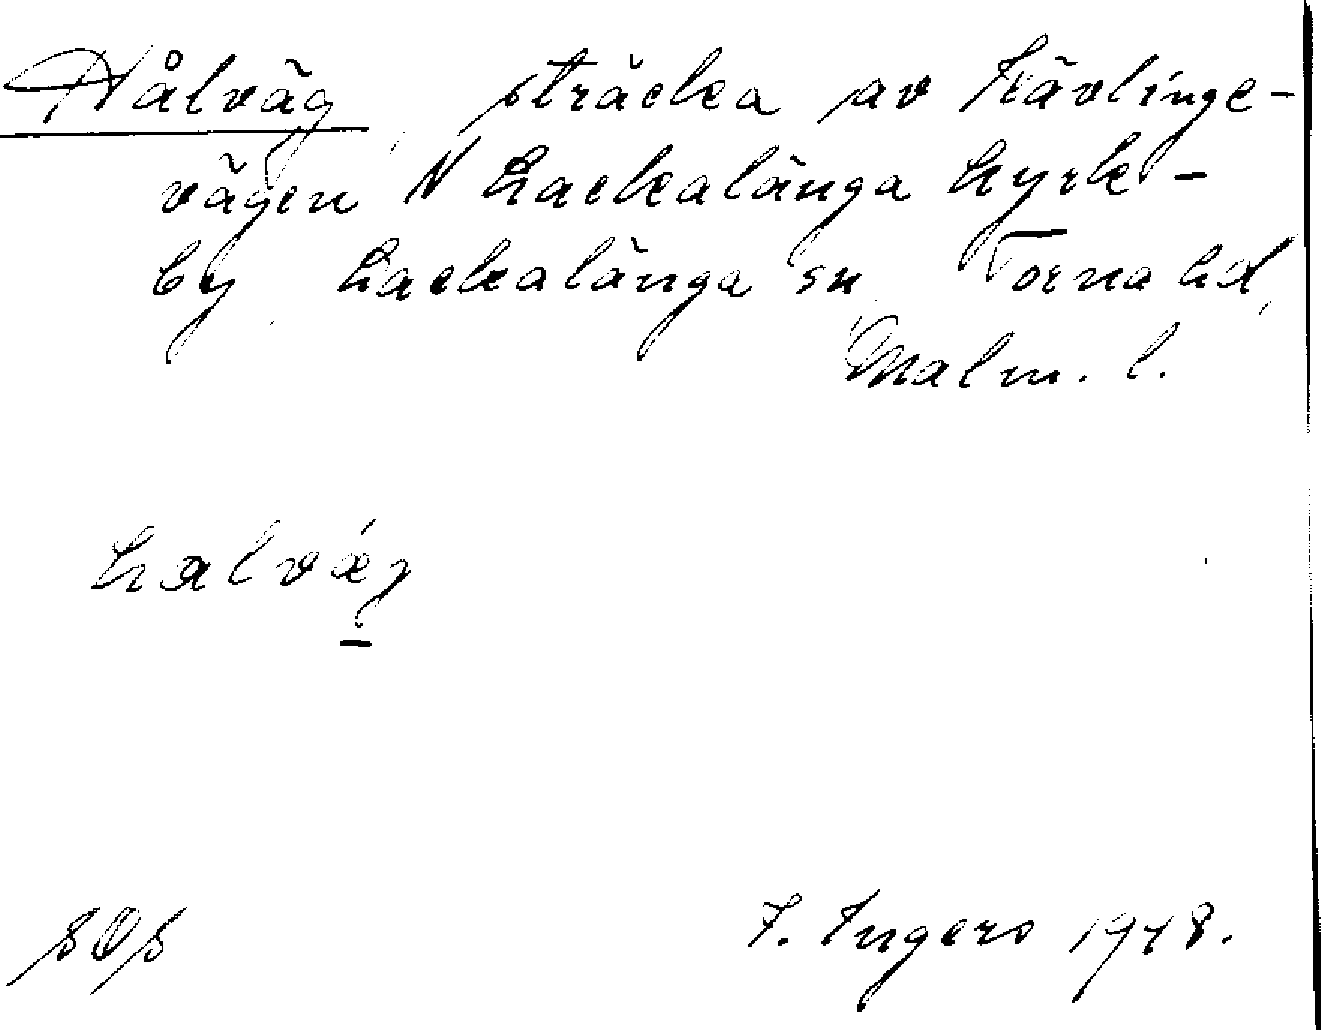 Hålväg, sträcka av Kävlinge-
vägen N Lackalänga kyrk-
by Lackalänga sn Torna hd,
Malm. l.
halvǽg
I. Ingers 1948.